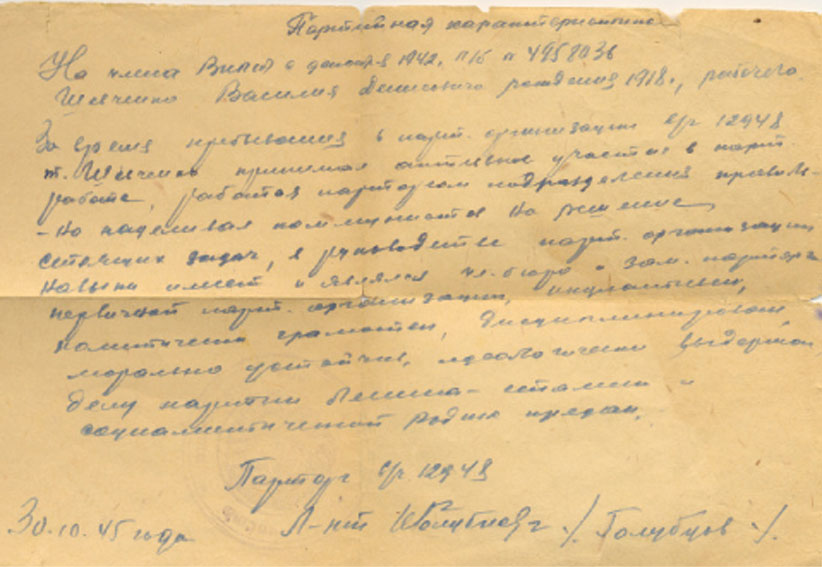 Партийная характеристика
На члена ВКП(б) с декабря 1942, п/б № 4958036
Шевченко Василия Денисовича рождения 1918 г., рабочего.
За время пребывания в парт. организации в/ч 12948
т. Шевченко принимал активное участие в парт.
работе, работая парторгом подразделения правиль-
-но нацеливал коммунистов на решение
стоящих задач, в руководстве парт. организации
навыки имеет и являлся чл. бюро и зам. парторга
первичной парт. организации, инициативен,
политически грамотен, дисциплинирован,
морально устойчив, идеологически выдержан,
делу партии Ленина-Сталина и
социалистической родине предан.
Парторг в/ч 12948
30.10.45 года Л-нт /Голубцов/.